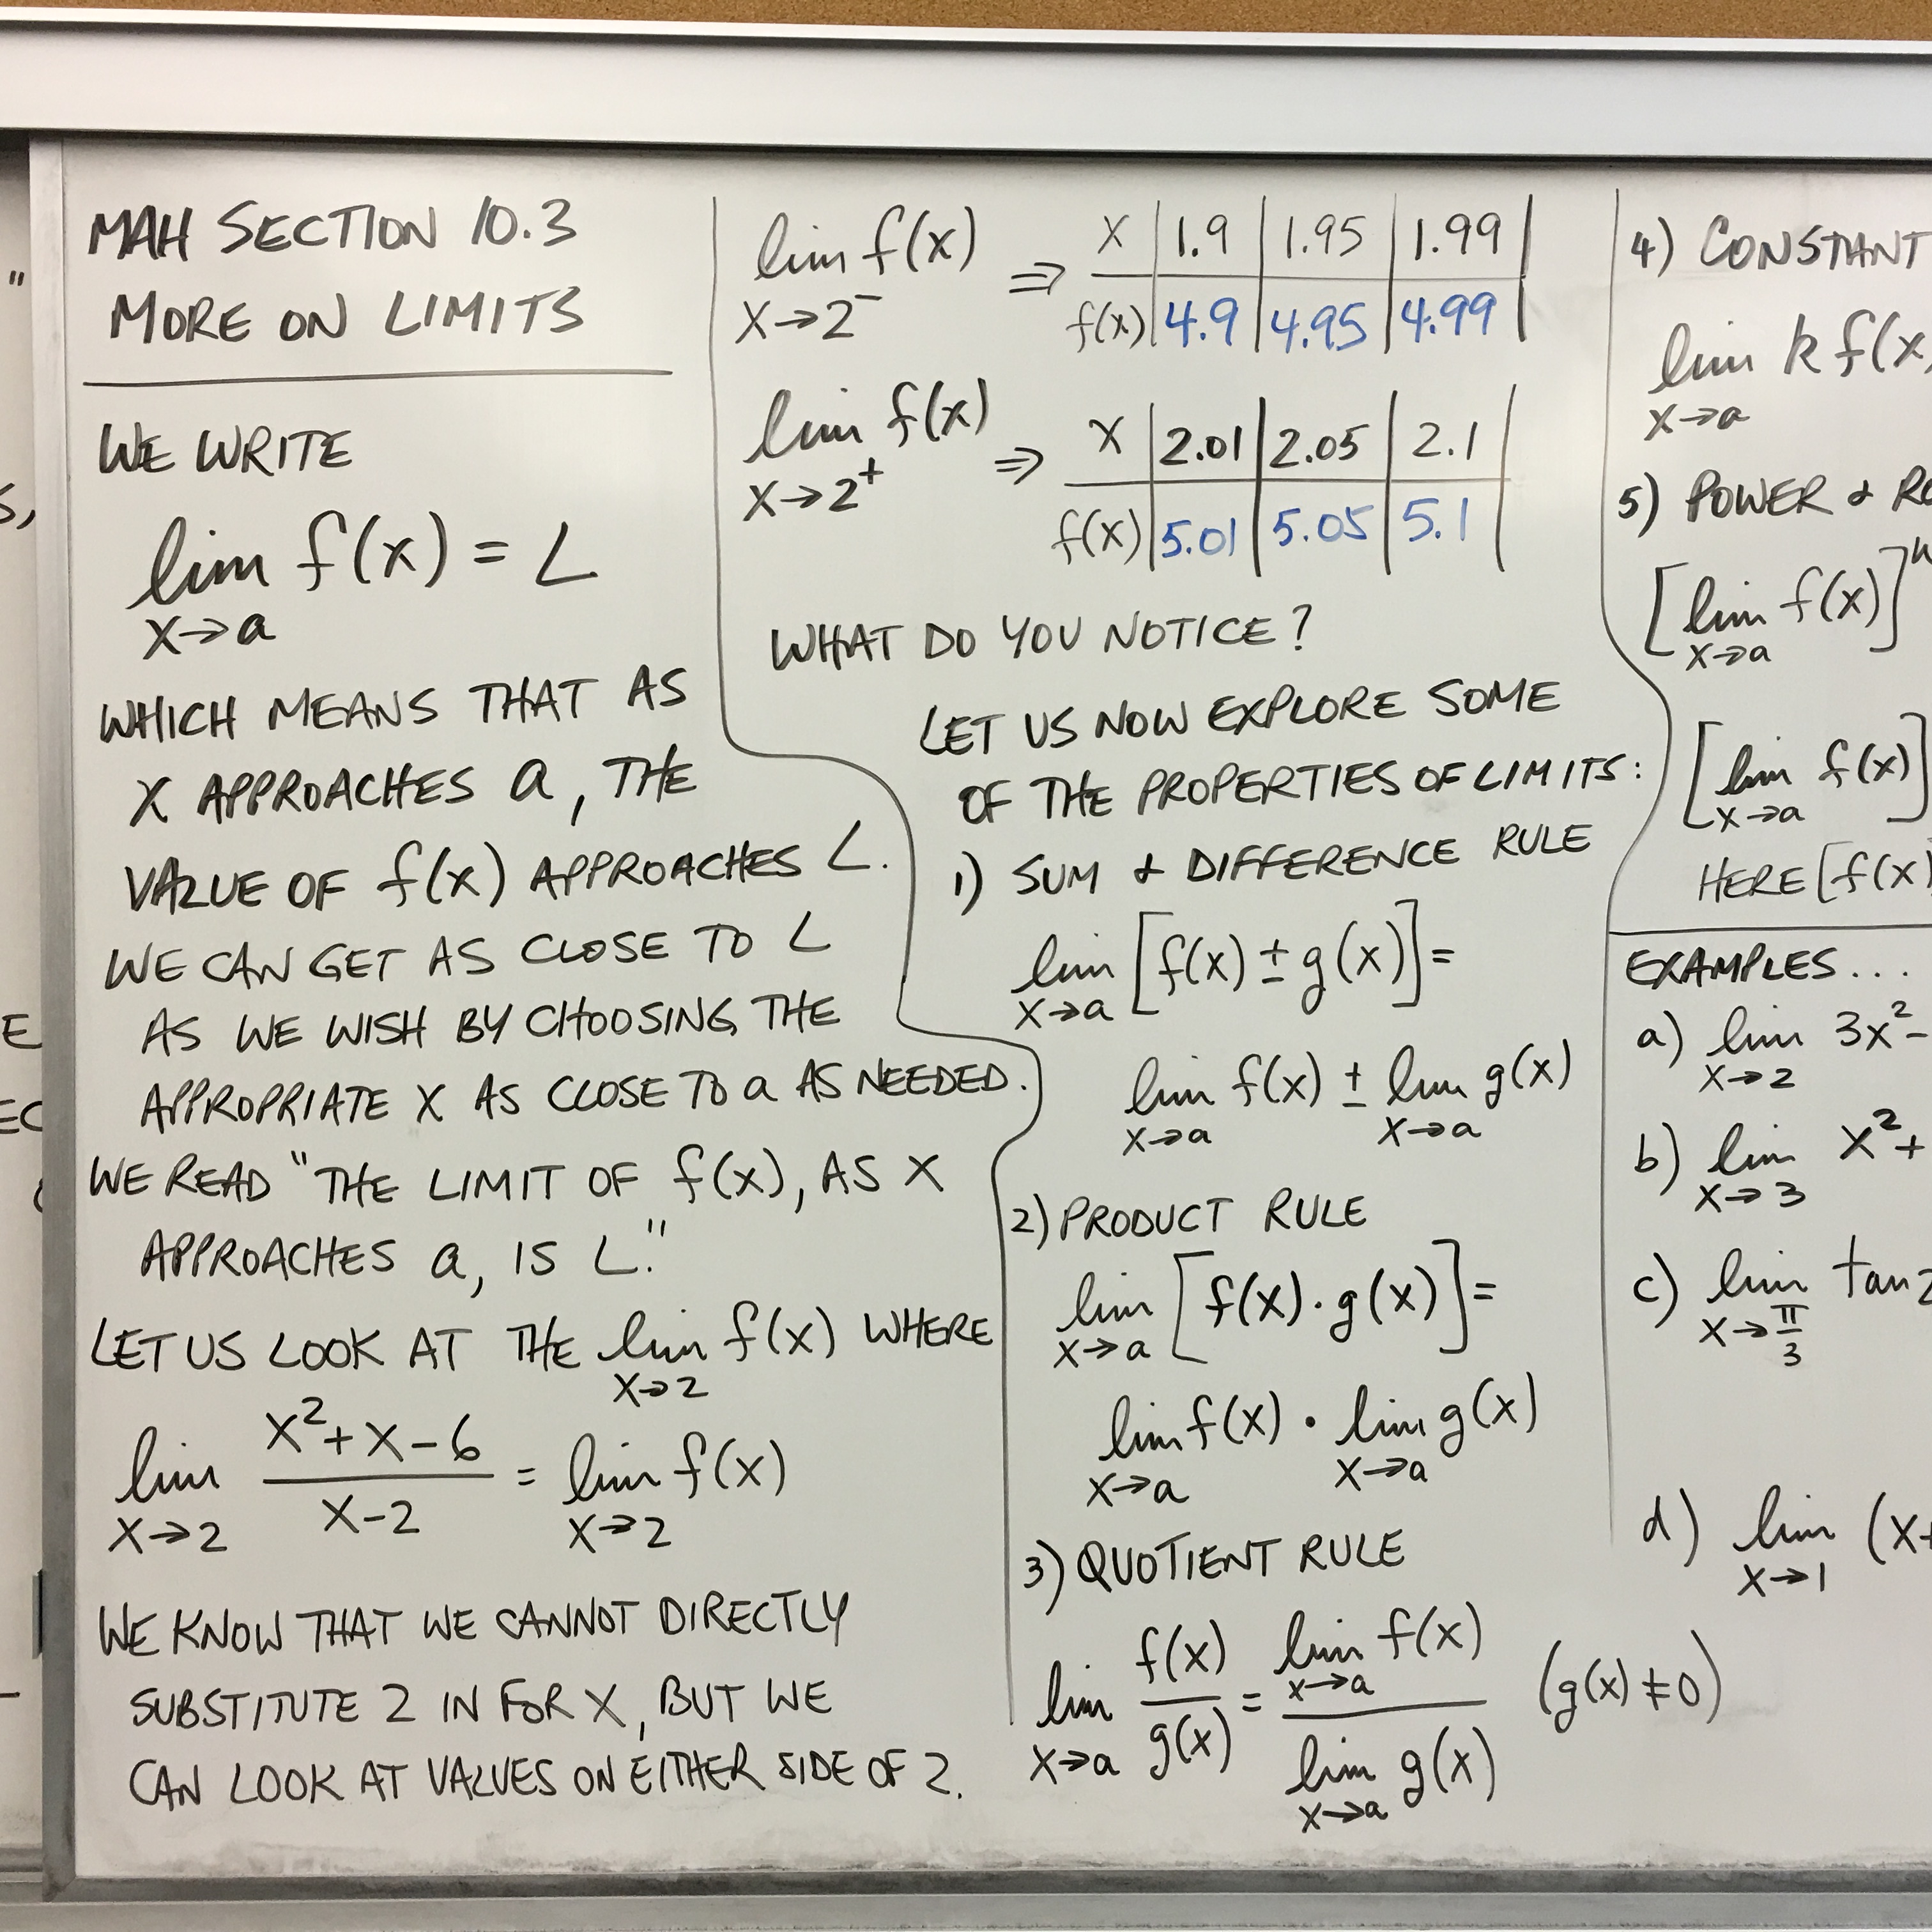 MAH SECTION 10.3
MORE ON LIMITS
WE WRITE
lim f(x) = L
x→a
WHICH MEANS THAT AS
X APPROACHES a, THE
VALUE OF f(x) APPROACHES L.
WE CAN GET AS CLOSE TO L
AS WE WISH BY CHOOSING THE
APPROPRIATE X AS CLOSE TO a AS NEEDED.
WE READ "THE LIMIT OF f(x), AS X
APPROACHES a, IS L."
LET US LOOK AT THE lim f(x) WHERE
x→2
lim x²+x-6 / x-2 = lim f(x)
x→2 x→2
WE KNOW THAT WE CANNOT DIRECTLY
SUBSTITUTE 2 IN FOR X, BUT WE
CAN LOOK AT VALUES ON EITHER SIDE OF 2.
lim f(x) ⇒ X | 1.9 | 1.95 | 1.99 |
x→2⁻ f(x) | 4.9 | 4.95 | 4.99 |
lim f(x) ⇒ X | 2.01 | 2.05 | 2.1 |
x→2⁺ f(x) | 5.01 | 5.05 | 5.1 |
WHAT DO YOU NOTICE?
LET US NOW EXPLORE SOME
OF THE PROPERTIES OF LIMITS:
1) SUM & DIFFERENCE RULE
lim [f(x) ± g(x)] =
x→a
lim f(x) ± lim g(x)
x→a x→a
2) PRODUCT RULE
lim [f(x) · g(x)] =
x→a
lim f(x) · lim g(x)
x→a x→a
3) QUOTIENT RULE
lim f(x) / g(x) = lim f(x) / lim g(x) (g(x) ≠ 0)
x→a x→a x→a
4) CONSTANT
lim k f(x)
x→a
5) POWER &
[lim f(x)]ⁿ
x→a
[lim f(x)]
x→a
HERE [f(x)
EXAMPLES...
a) lim 3x²-
x→2
b) lim x²+
x→3
c) lim tan
x→π/3
d) lim (x+
x→1